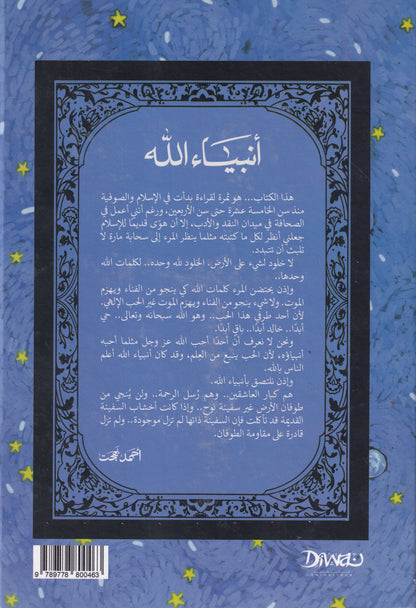 أنبياء الله
هذا الكتاب... هو ثمرة لقراءة بدأت في الإسلام والصوفية
منذ سن الخامسة عشرة حتى سن الأربعين، ورغم أنني أعمل في
الصحافة في ميدان النقد والأدب، إلا أن هوًى قديمًا للإسلام
جعلني أنظر لكل ما كتبته مثلما ينظر المرء إلى سحابة مارة لا
تلبث أن تتبدد.
لا خلود لشيء على الأرض، الخلود لله وحده.. لكلمات الله
وحدها..
وإذن يحتضن المرء كلمات الله كي ينجو من الفناء ويهزم
الموت. ولا شيء ينجو من الفناء ويهزم الموت غير الحب الإلهي.
لأن أحد طرفي هذا الحب.. وهو الله سبحانه وتعالى.. حي
أبدًا.. خالد أبدًا.. باقٍ أبدًا.
ونحن لا نعرف أن أحدًا أحب الله عز وجل مثلما أحبه
أنبياؤه، لأن الحب ينبع من العلم، وقد كان أنبياء الله أعلم
الناس بالله.
وإذن نلتصق بأنبياء الله.
هم كبار العاشقين.. وهم رُسل الرحمة.. ولن يُنجي من
طوفان الأرض غير سفينة نوح.. وإذا كانت أخشاب السفينة
القديمة قد تآكلت فإن السفينة ذاتها لم تزل موجودة.. ولم تزل
قادرة على مقاومة الطوفان.
أحمد بهجت
9 789778 800463
Diwan